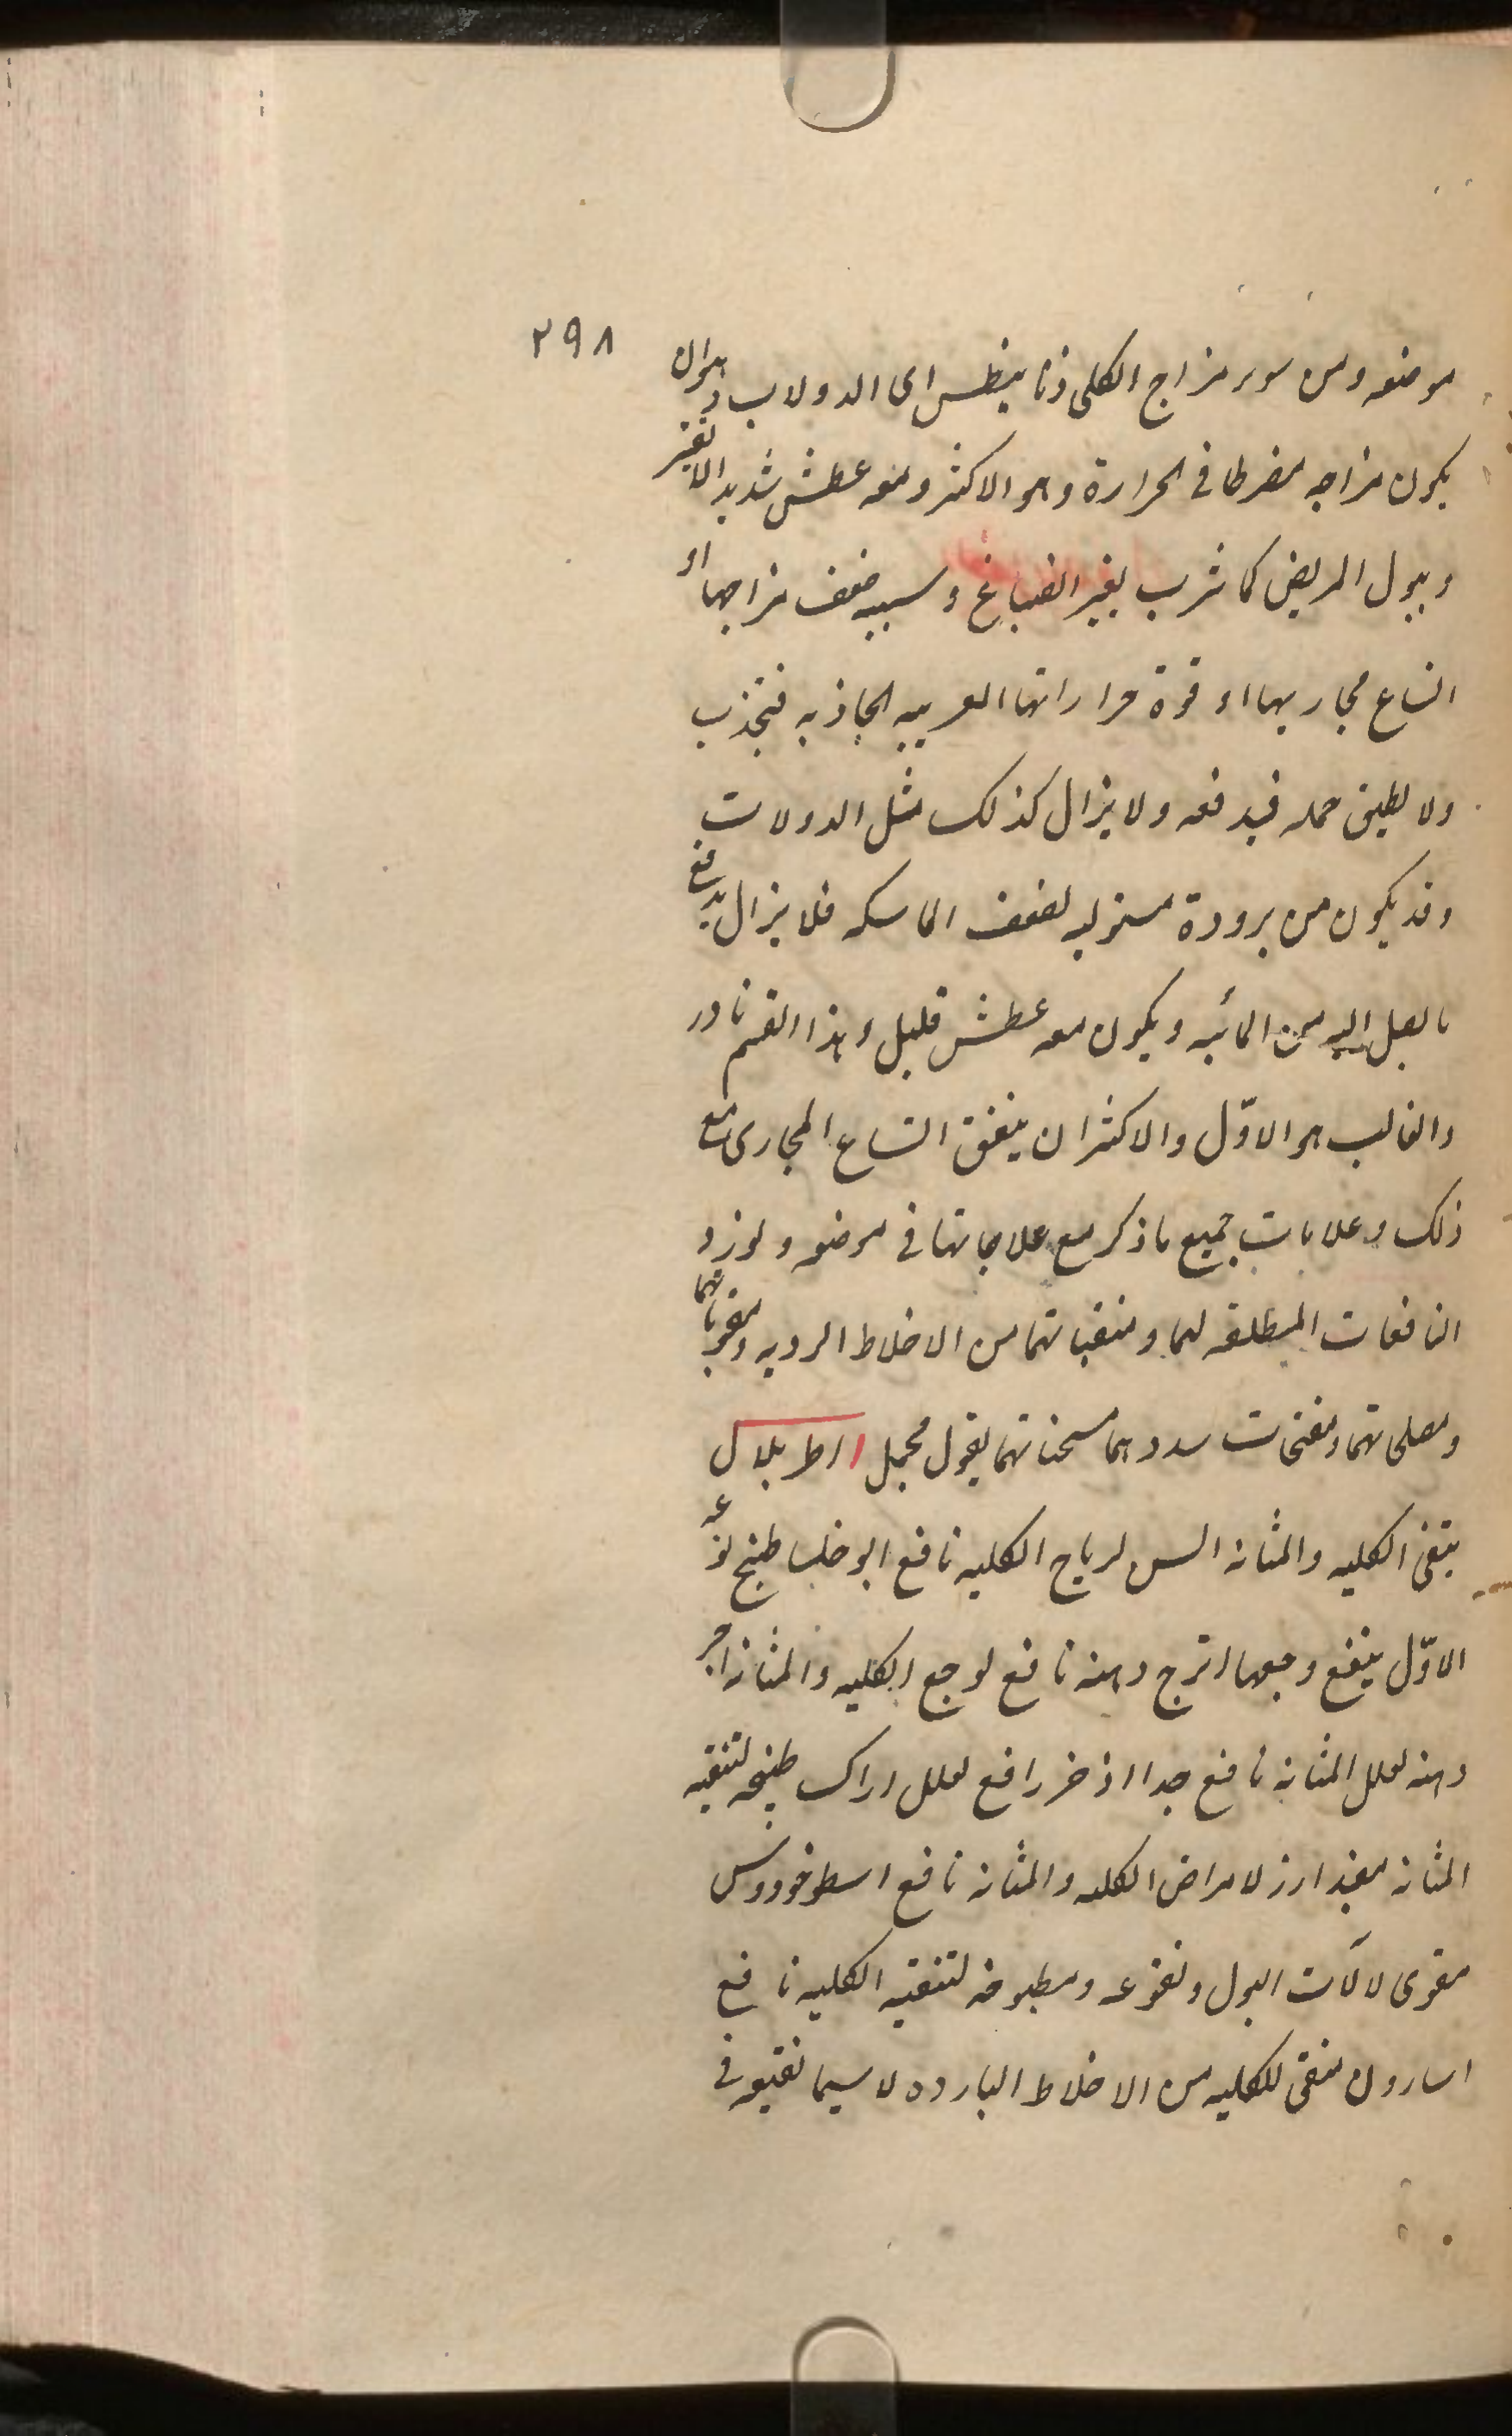 ٢٩٨
موضعه ومن سوء مزاج الكلى ذيانيطس اى الدولاب وهو ان
يكون مزاجه مفرطا فى الحرارة وهو الاكثر ومعه عطش شديد لا يفتر
ويبول المريض كما شرب بغير انصباغ وسببه ضعف مزاجها او
اتساع مجاريها او قوة حراراتها الغريبه الجاذبه فتجذب
ولا يطيق حمله فيدفعه ولا يزال كذلك مثل الدولاب
وقد يكون من برودة مستوليه لضعف الماسكه فلا يزال يدفع
ما يصل اليه من المائيه ويكون معه عطش قليل وهذا القسم نادر
والغالب هو الاوّل والاكثر ان يتفق اتساع المجارى مع
ذلك وعلامات جميع ما ذكر مع علاجاتها فى موضعه ولنورد
النافعات المطلقه لهما ومنقياتهما من الاخلاط الرديه ومقوياتهما
ومصلحاتهما ومفتحات سددهما مسخناتهما بقول مجمل اطريلال
ينقى الكليه والمثانه السس لرياح الكليه نافع ابو خلسا طبخ نوعه
الاوّل ينفع وجعها اترج دهنه نافع لوجع الكليه والمثانه اجر
دهنه لعلل المثانه نافع جدا اذخر رافع لعلل اراك طبيخه لتنقيه
المثانه مفيد ارز لامراض الكليه والمثانه نافع اسطوخودوس
مقوى لالآت البول ونقوعه ومطبوخه لتنقيه الكليه نافع
اسارون منقى للكليه من الاخلاط البارده لا سيما نقيعه فى